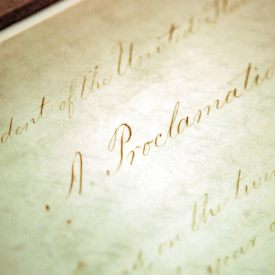 dent of the United States
A Proclamatio
on the twen
year o